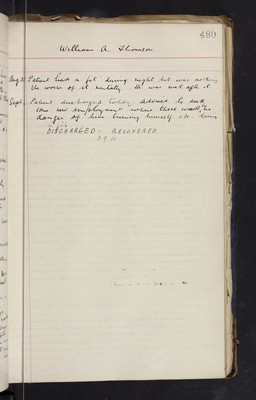 480
William A. Thomson
Aug 31 Patient had a fit during night but was nothing
the worse of it mentally. He was wet after it
Sept. Patient discharged today. Advised to seek
some new employment where there would be no
danger of him burning himself etc. during
a fit
DISCHARGED - RECOVERED
2.9.10